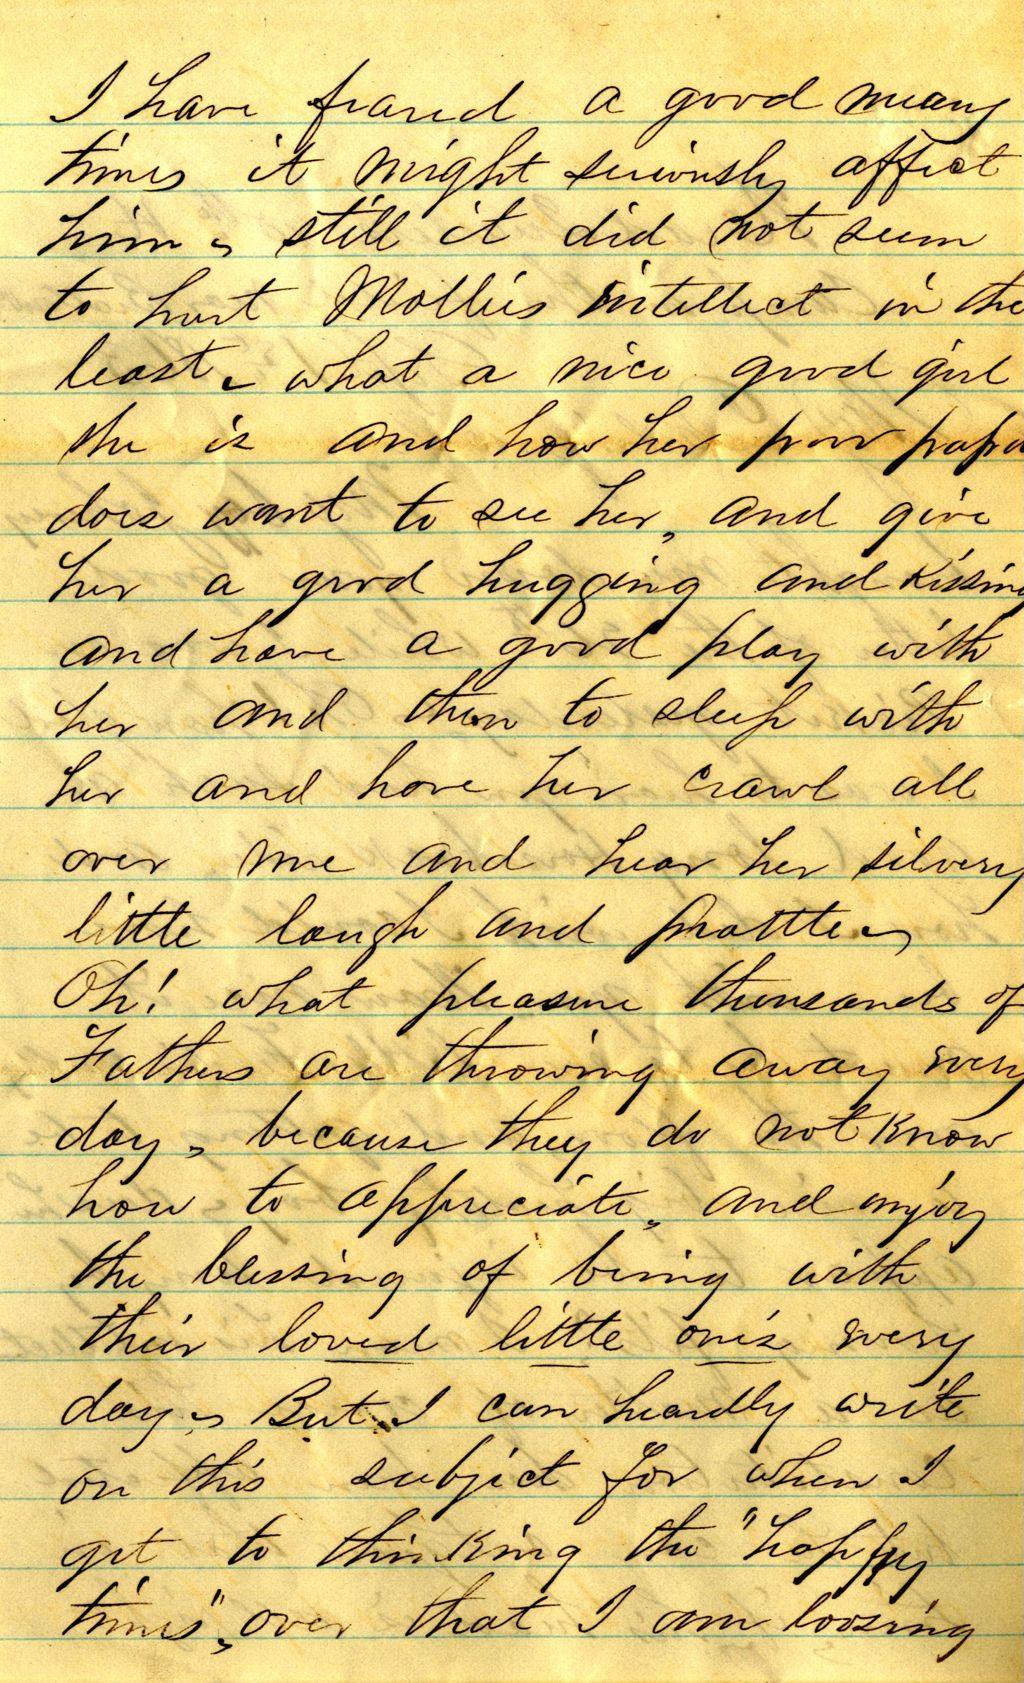 I have feared a good many
times it might seriously affect
him, still it did not seem
to hurt Mollies intellect in the
least, what a nice good girl
she is and how her poor papa
does want to see her, and give
her a good hugging and Kissing
and have a good play with
her and then to sleep with
her and have her crawl all
over me and hear her silvery
little laugh and prattle,
Oh! what pleasure thousands of
Fathers are throwing away every
day, because they do not Know
how to appreciate, and enjoy
the blessing of being with
their loved little one's every
day, But I can heardly write
on this subject for when I
get to thinking the "happy
times", over that I am loosing